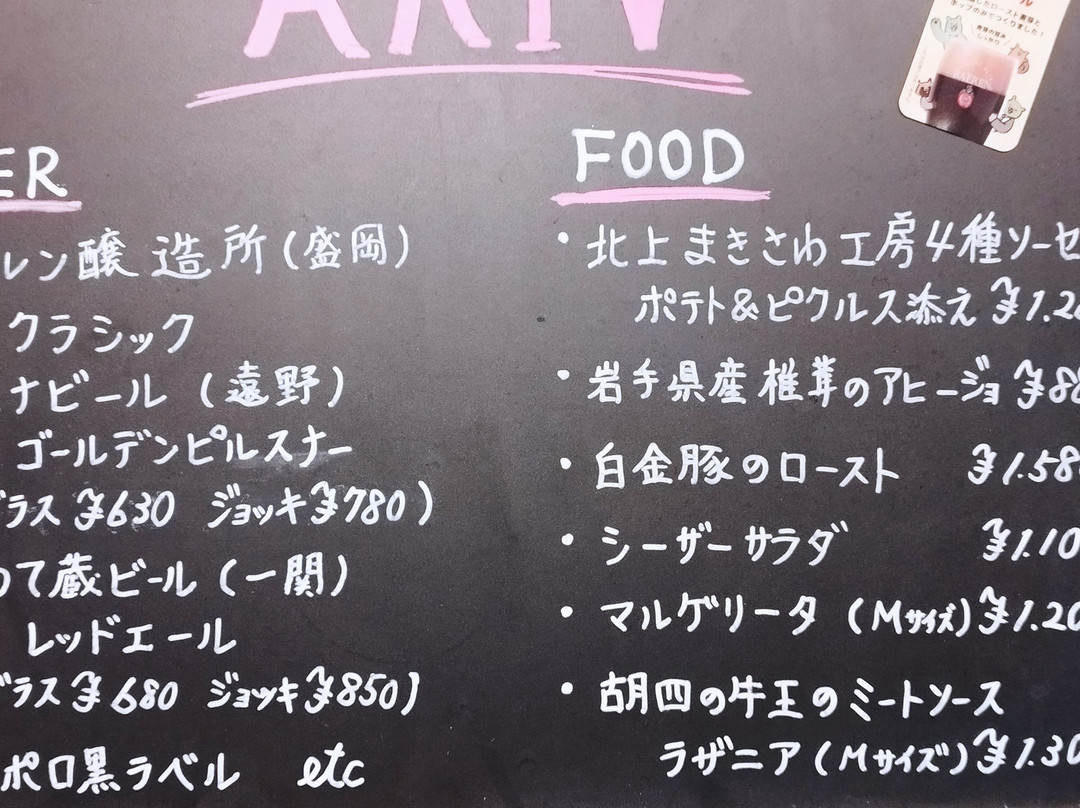 ER
レン醸造所(盛岡)
クラシック
ナビール(遠野)
ゴールデンピルスナー
グラス¥630 ジョッキ¥780)
て蔵ビール(一関)
レッドエール
グラス¥680 ジョッキ¥850)
ポロ黒ラベル etc
FOOD
・北上まきさわ工房4種ソーセ
ポテト&ピクルス添え ¥1.2
・岩手県産椎茸のアヒージョ ¥88
・白金豚のロースト ¥1.58
・シーザーサラダ ¥1.10
・マルゲリータ(Mサイズ)¥1.20
・胡四の牛王のミートソース
ラザニア(Mサイズ)¥1.30
したロースト麦芽と
ホップのみでつくりました!